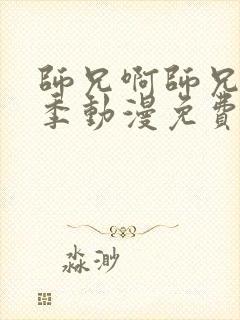 師兄啊師兄
季動漫免費
淼渺